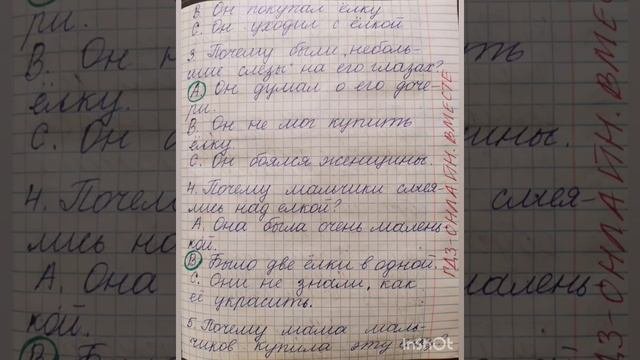 В. Он покупал ёлку
С. Он уходил с ёлкой
3. Почему были "неболь-
шие слёзы" на его глазах?
А. Он думал о его доче-
ри.
В. Он не мог купить
ёлку.
С. Он боялся женщины.
4. Почему мальчики смея-
лись над елкой?
А. Она была очень малень-
кой.
В. Было две ёлки в одной.
С. Они не знали, как
её украсить.
5. Почему мама маль-
чиков купила эту
ГДЗ-ОНЛАЙН. ВМЕСТЕ
InShot